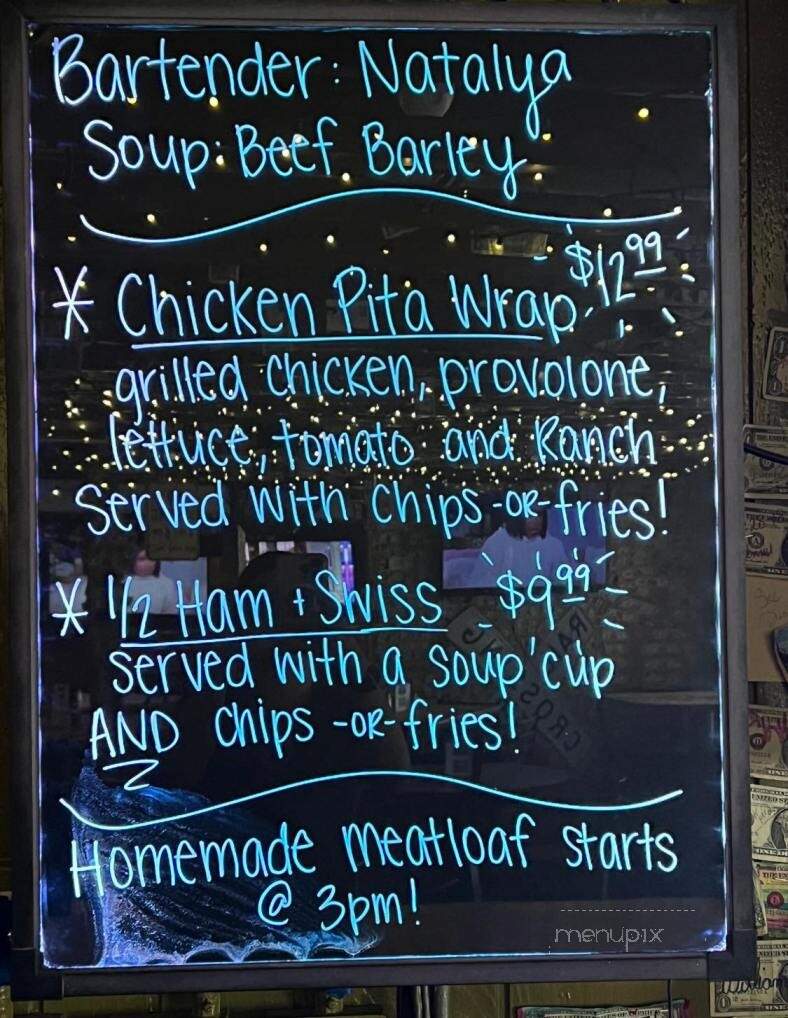 Bartender: Natalya
Soup: Beef Barley
* Chicken Pita Wrap $12.99
grilled chicken, provolone,
lettuce, tomato and Ranch
served with chips -OR- fries!
* 1/2 Ham + Swiss $9.99
served with a soup cup
AND chips -OR- fries!
Homemade meatloaf starts
@ 3pm!
menupix